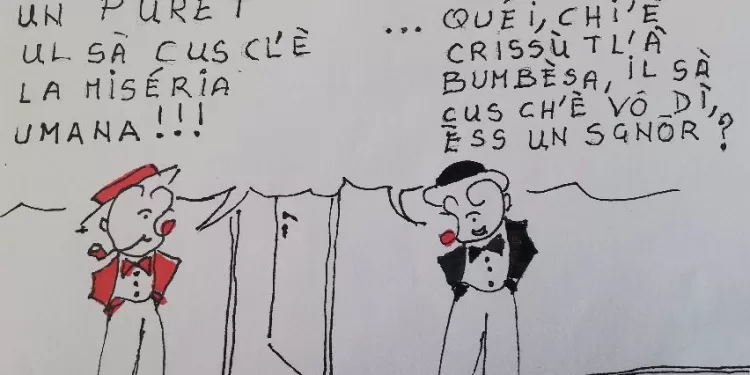 UN PURET
UL SÀ CUS CL'È
LA MISÉRIA
UMANA!!!
... QUÉI, CHI'È
CRISSÙ TL'Â
BUMBÈSA, IL SÀ
CUS CH'È VÔ DÌ,
ÈSS UN SGNÔR?